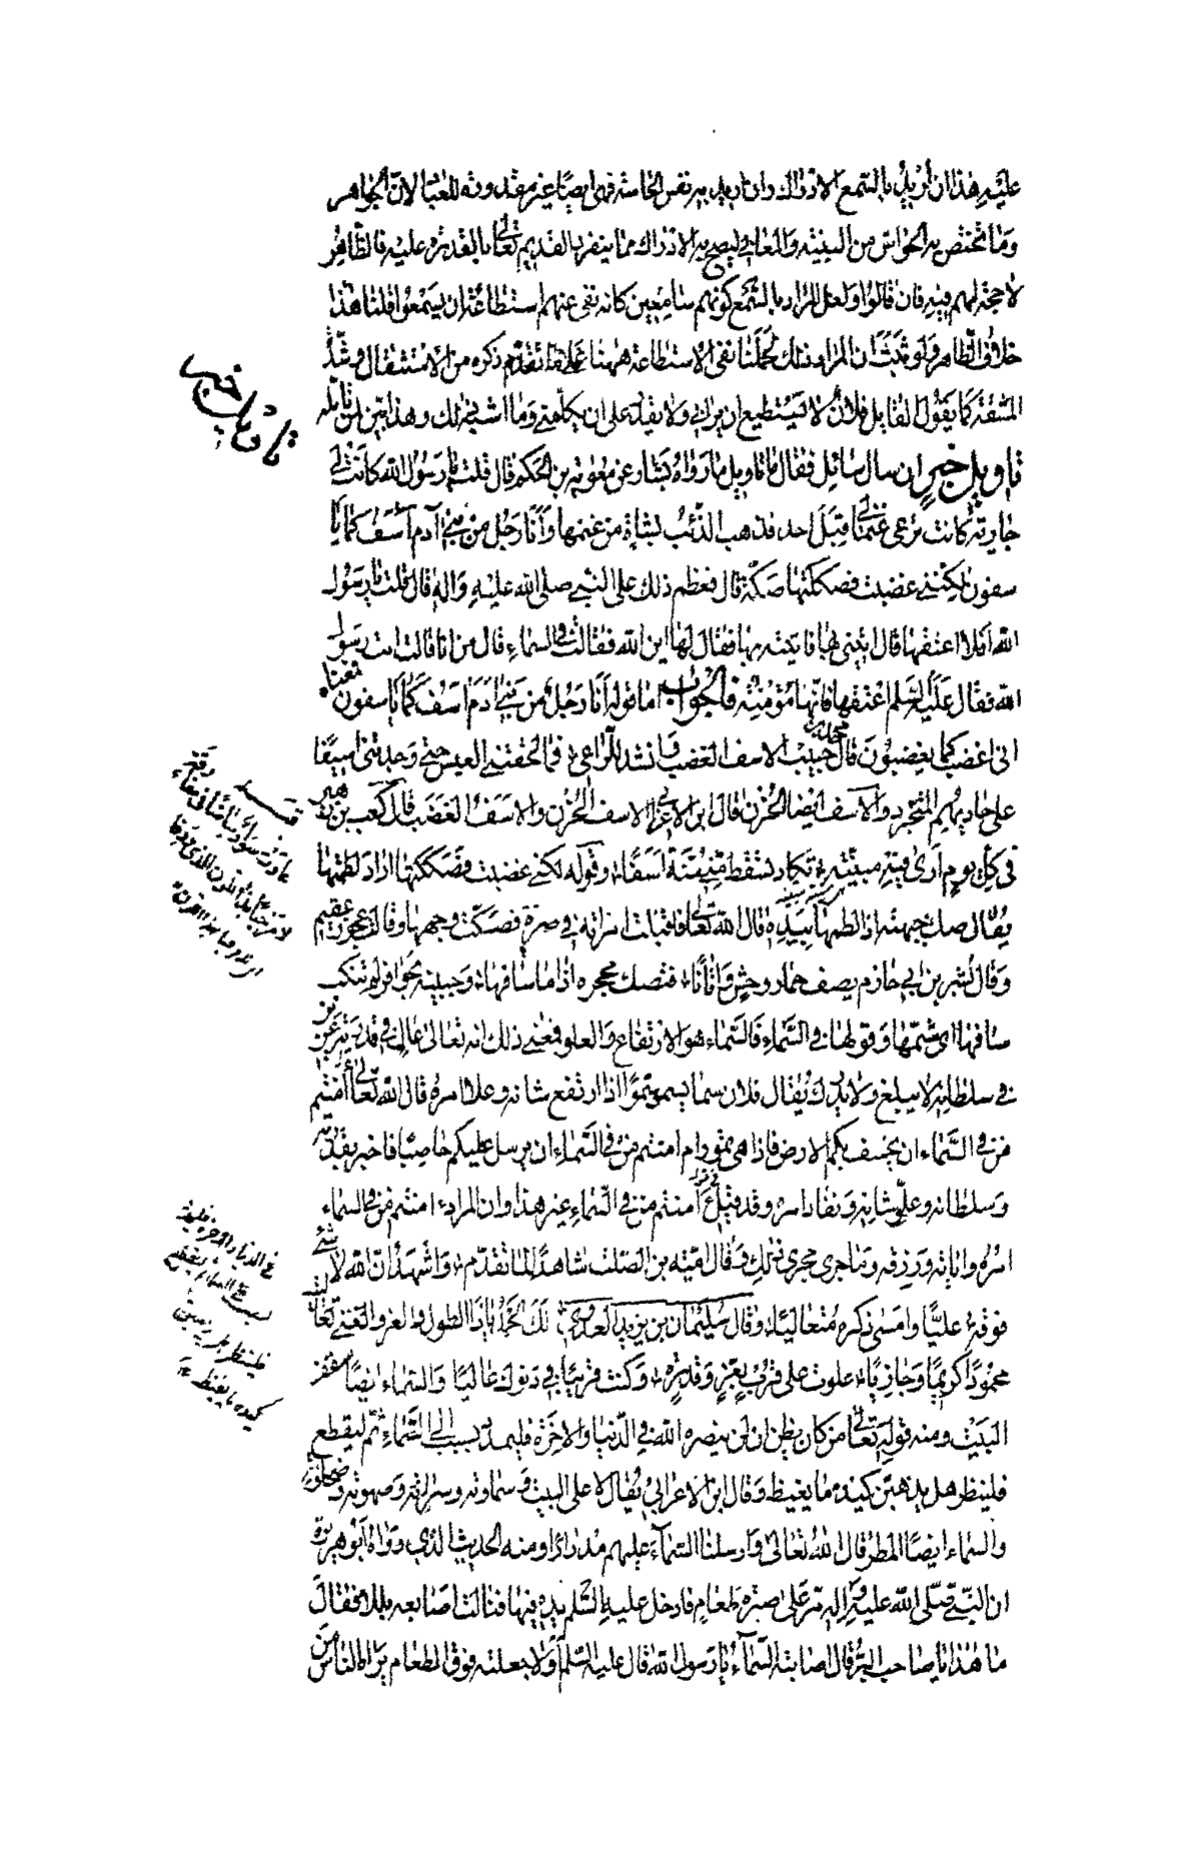 عليه هذا ان اريد بالسمع الادراك وان اريد به نفس الحاسة فهى ايضا غير مقدورة للعباد لان الجواهر
وما تختص به الحواس من البنية والمعانى ليصح به الادراك مما ينفرد القديم تعالى بالقدرة عليه فالظاهر
لا حجة لهم فيه فان قالوا ولعل المراد بالسمع كونهم سامعين كانه نفى عنهم استطاعة ان يسمعوا قلنا هذا
خلاف الظاهر ولو ثبت ان المراد ذلك لحملنا نفى الاستطاعة ههنا على ما تقدم ذكره من الاستثقال وشدة
المشقة كما يقول القايل فلان لا يستطيع ان يرانى ولا يقدر على ان يكلمنى وما اشبه ذلك وهذا بين لمن تامله
تاويل خبر ان سال سائل فقال ما تاويل ما رواه بشار عن معوية بن الحكم قال قلت يا رسول الله كانت لى
جارية كانت ترعى غنما لى قبل احد فذهب الذئب بشاة من غنمها وانا رجل من بنى آدم آسف كما يا
سفون لكننى غضبت فصككتها صكة قال فعظم ذلك على النبى صلى الله عليه واله قال قلت يا رسول
الله افلا اعتقها قال ايتنى بها فاتيته بها فقال لها اين الله فقالت فى السماء قال من انا قالت انت رسول
الله فقال عليه السلم اعتقها فانها مؤمنة فالجواب اما قوله انا رجل من بنى آدم آسف كما ياسفون فمعناه
انى اغضب كما يغضبون قال محمد بن حبيب الاسف الغضب وانشد للراعى فما لحقتنى العيس حتى وجدتنى اسيفا
على حاديهم المتجرد والاسف ايضا الحزن قال ابن الاعرابى الاسف الحزن والاسف الغضب قال كعب بن زهير
فى كل يوم ارى فيه مبينة تكاد تسقط منى منة اسفا وقوله لكنى غضبت فصككتها اراد لطمتها
يقال صك جبهته اذا لطمها بيده قال الله تعالى فاقبلت امراته فى صرة فصكت وجهها وقالت عجوز عقيم
وقال بشر بن ابى خازم يصف حمار وحش واتانا فتصك محجره اذا ما سافها وجبينه بحوافر لم تنكب
سافها اى شمها وقولها فى السماء فالسماء هو الارتفاع والعلو فمعنى ذلك انه تعالى عال فى قدرته عزيز
فى سلطانه لا يبلغ ولا يدرك يقال فلان سما يسمو سموا اذا ارتفع شانه وعلا امره قال الله تعالى أامنتم
من فى السماء ان يخسف بكم الارض فاذا هى تمور ام امنتم من فى السماء ان يرسل عليكم حاصبا فاخبر بقدرته
وسلطانه وعلو شانه ونفاد امره وقد قيل فى قوله أامنتم من فى السماء غير هذا وان المراد امنتم من فى السماء
امره واياته ورزقه وما جرى مجرى ذلك وقال امية بن الصلت شاهدا لما تقدم واشهد ان الله لا شئ
فوقه عليا وامسى ذكره متعاليا وقال سليمان بن يزيد العدوى لك الحمد يا ذا الطول والعز والغنى تعاليت
محمودا كريما وجازيا علوت على قرب بعز وقدرة وكنت قريبا فى دنوك عاليا والسماء ايضا سقف
البيت ومنه قوله تعالى من كان يظن ان لن ينصره الله فى الدنيا والاخرة فليمدد بسبب الى السماء ثم ليقطع
فلينظر هل يذهبن كيده ما يغيظ وقال ابن الاعرابى يقال لاعلى البيت سماوته وسراته وصهوته
والسماء ايضا المطر قال الله تعالى وارسلنا السماء عليهم مدرارا ومنه الحديث الذى رواه ابو هريرة
ان النبى صلى الله عليه واله مر على صبرة طعام فادخل عليه السلم يده فيها فنالت اصابعه بللا فقال
ما هذا يا صاحب البر قال اصابته السماء يا رسول الله قال عليه السلم اولا جعلته فوق الطعام يراه الناس من
تاويل خبر
فى الدنيا والاخرة فليمدد
بسبب الى السماء ثم ليقطع
فلينظر هل يذهبن
كيده ما يغيظ